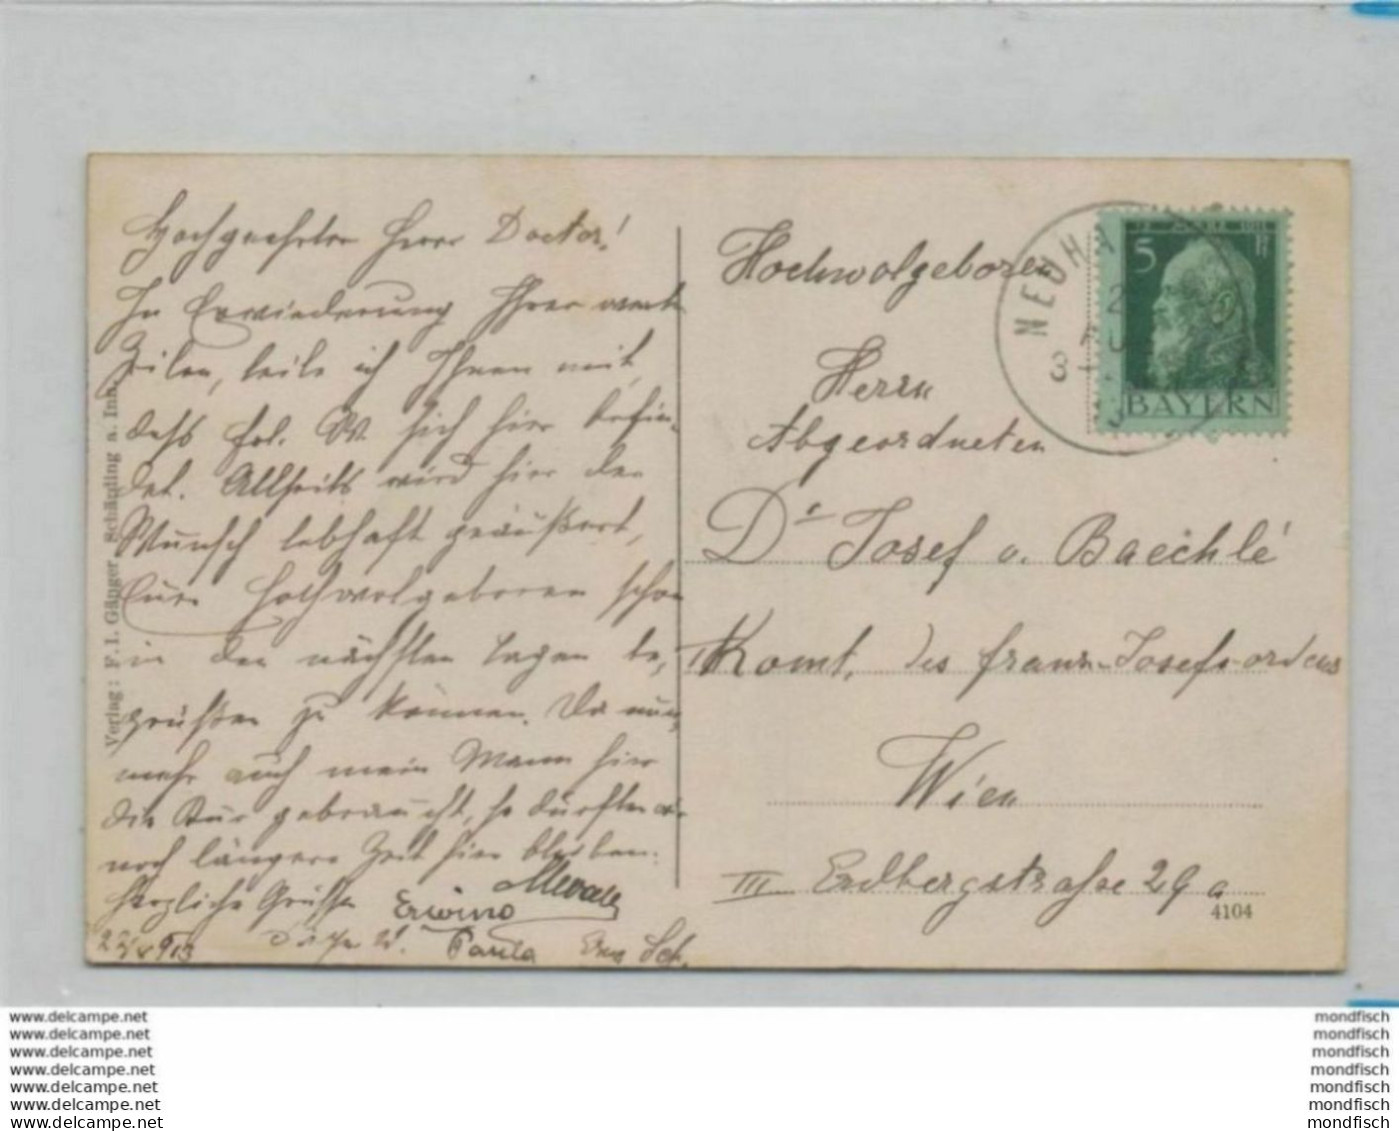 Hochgeehrter Herr Doctor!
In Erwiederung Ihrer werten
Zeilen, teile ich Ihnen mit,
daß Frl. W. sich hier befin-
det. Allseits wird hier der
Wunsch lebhaft geäußert,
Euer Hochwolgeboren schon
in den nächsten Tagen be-
grüßen zu können. Da nun-
mehr auch mein Mann hier
die Kur gebraucht, so dürften wir
noch längere Zeit hier bleiben.
Herzliche Grüsse
Erwine
Paula
22/8 913
Verlag: F. I. Gänger, Schärding a. Inn.
Hochwolgeboren
Herrn
Abgeordneten
Dr Josef v. Baechlé
Komt. des franz-Josefs-ordens
Wien
III Erdbergstraße 29a
4104
NEUHA
5
BAYERN
www.delcampe.net
www.delcampe.net
www.delcampe.net
www.delcampe.net
www.delcampe.net
www.delcampe.net
www.delcampe.net
mondfisch
mondfisch
mondfisch
mondfisch
mondfisch
mondfisch
mondfisch